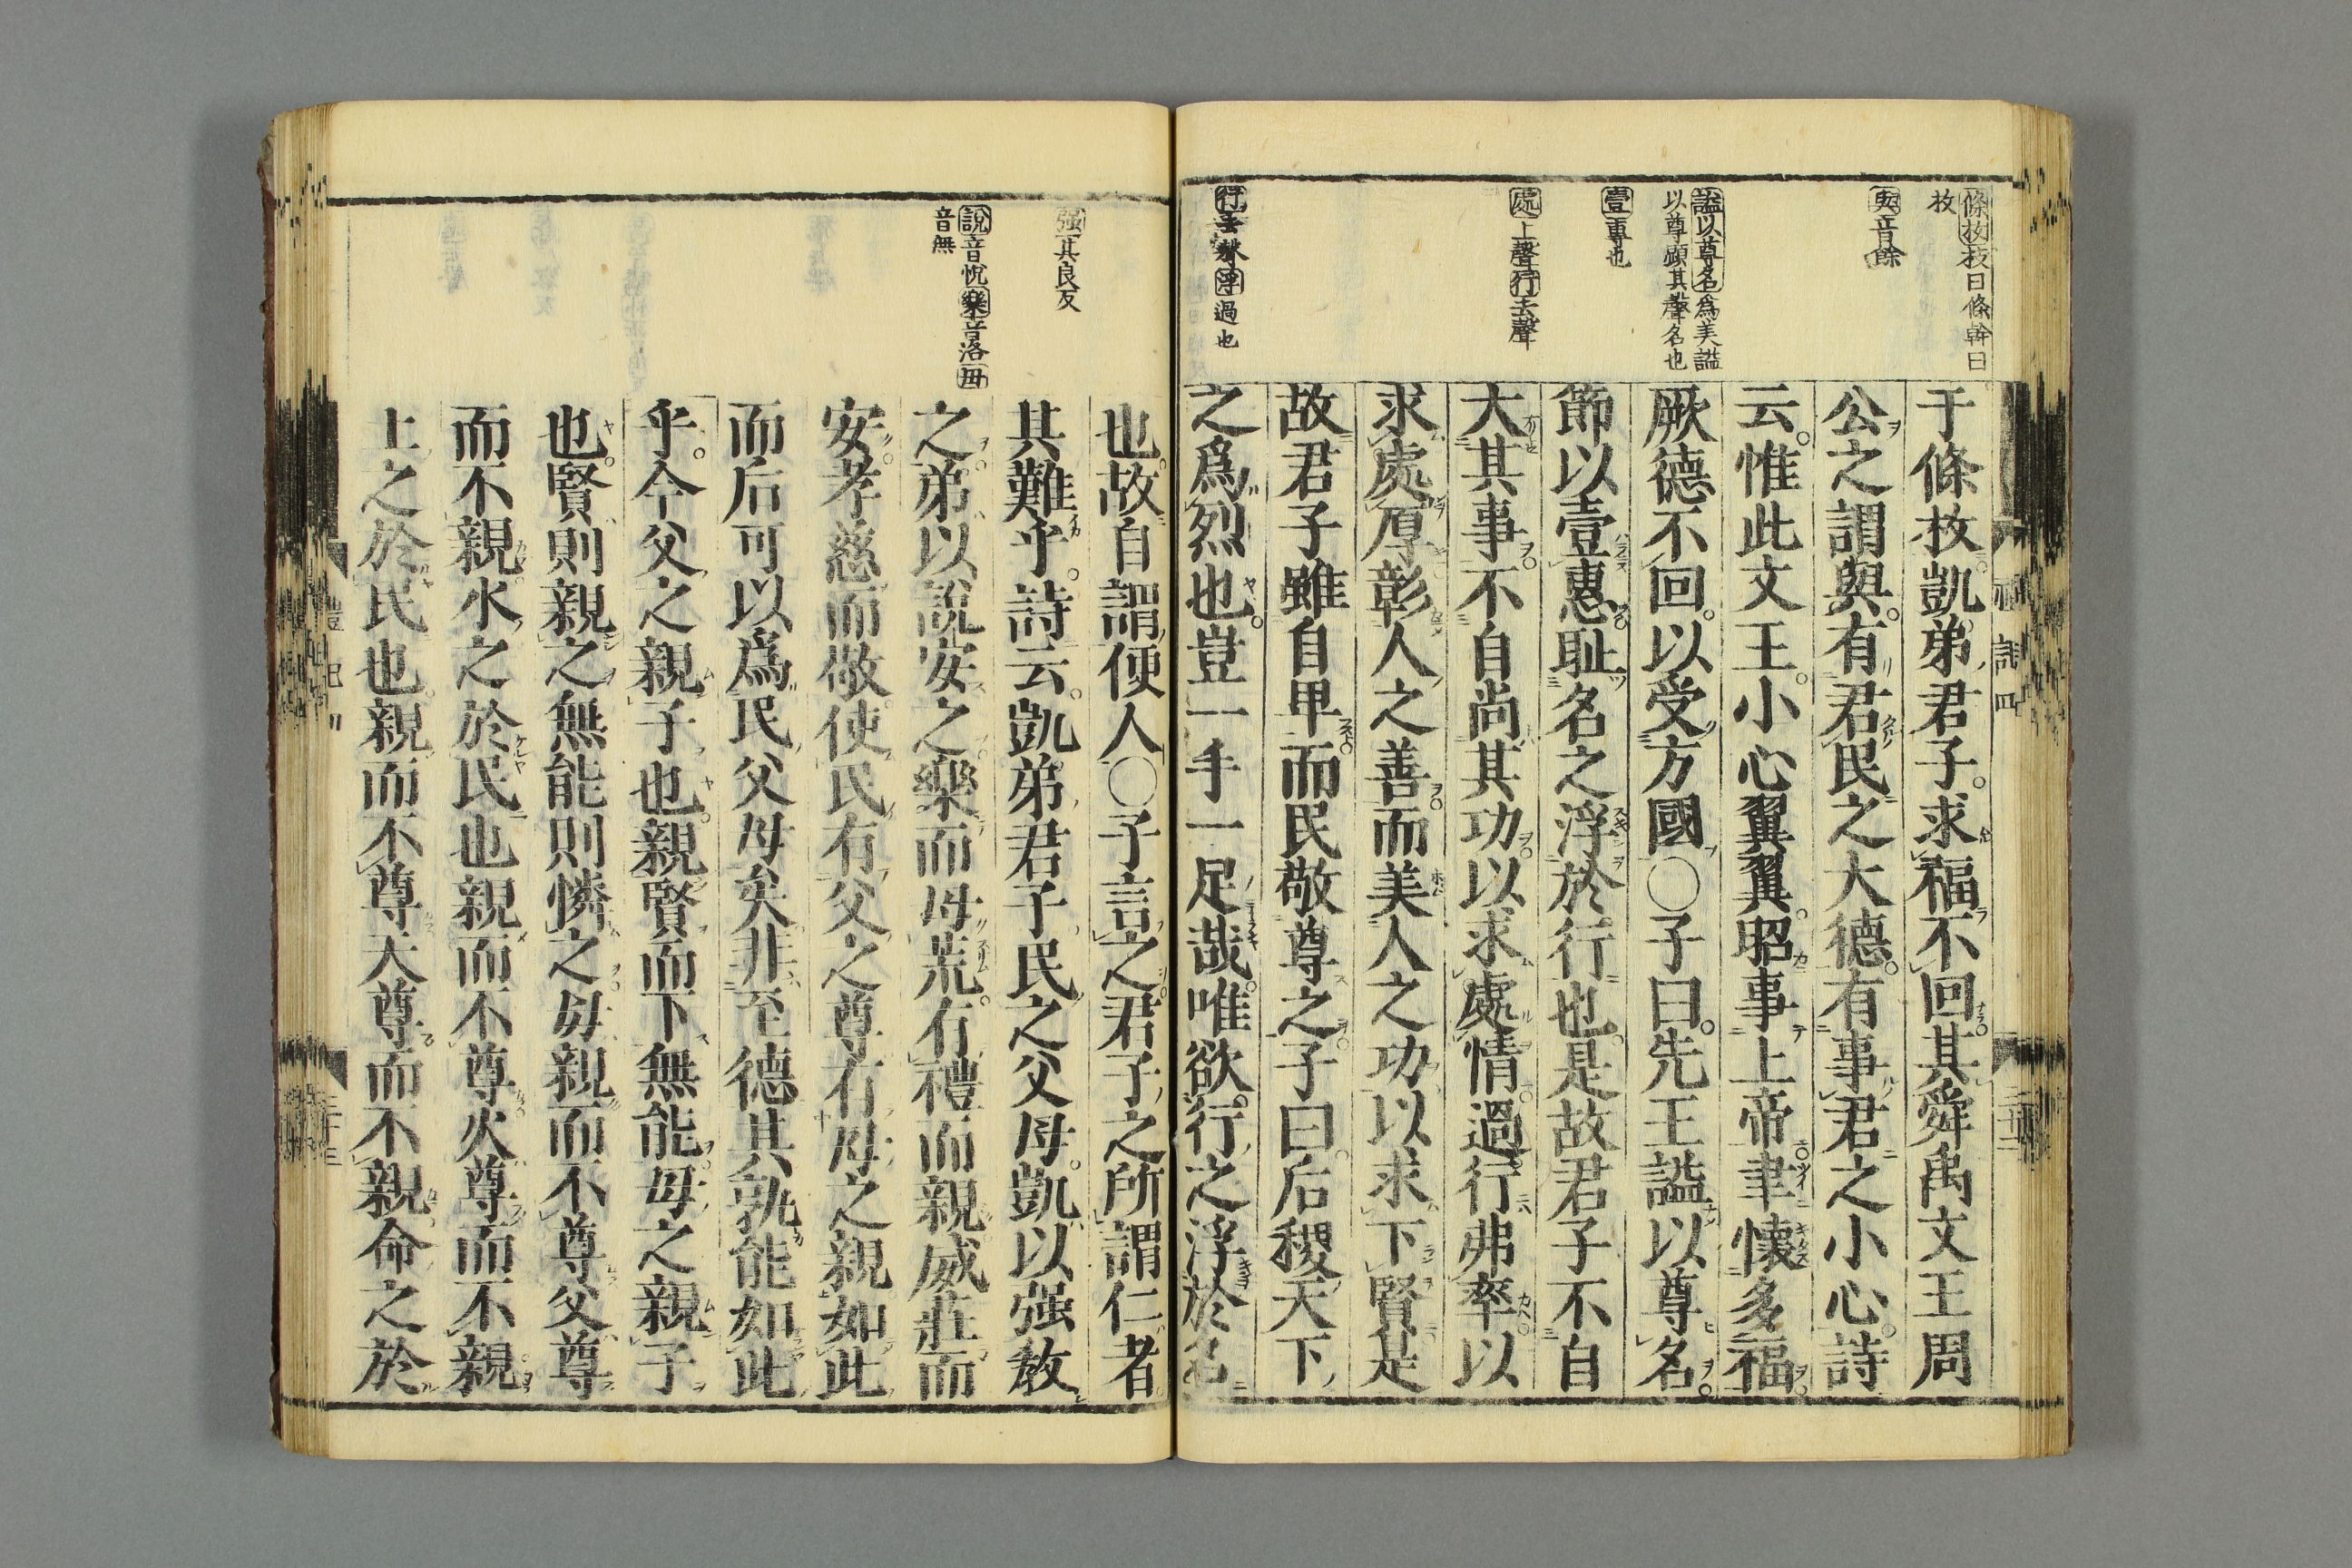 條枚枝曰條幹曰
枚
與音餘
諡以尊名爲美諡
以尊顯其聲名也
壹專也
處上聲行去聲
浮過也
于條枚凱弟君子求福不回其舜禹文王周
公之謂與有君民之大德有事君之小心詩
云惟此文王小心翼翼昭事上帝聿懷多福
厥德不回以受方國〇子曰先王諡以尊名
節以壹惠耻名之浮於行也是故君子不自
大其事不自尚其功以求處情過行弗率以
求處厚彰人之善而美人之功以求下賢是
故君子雖自卑而民敬尊之子曰后稷天下
之爲烈也豈一手一足哉唯欲行之浮於名
强其良反
說音悅樂音洛毋
音無
也故自謂便人〇子言之君子之所謂仁者
其難乎詩云凱弟君子民之父母凱以强敎
之弟以說安之樂而毋荒有禮而親威莊而
安孝慈而敬使民有父之尊有母之親如此
而后可以爲民父母矣非至德其孰能如此
乎今父之親子也親賢而下無能母之親子
也賢則親之無能則憐之母親而不尊父尊
而不親水之於民也親而不尊火尊而不親
土之於民也親而不尊天尊而不親命之於
禮記